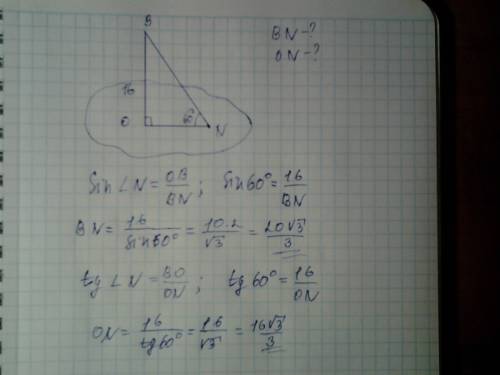 B
BN-?
ON-?
16
O 60 N
Sin∠N = OB/BN ; Sin60° = 16/BN
BN = 16/sin60° = 10·2/√3 = 20√3/3
tg∠N = BO/ON ; tg60° = 16/ON
ON = 16/tg60° = 16/√3 = 16√3/3